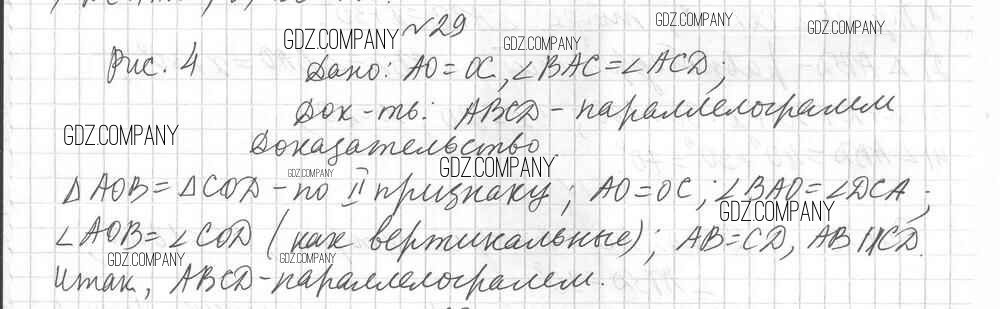 №29
Рис. 4 Дано: AO = OC, ∠BAC = ∠ACD;
Док-ть: ABCD - параллелограмм
Доказательство.
△AOB = △COD - по II признаку; AO = OC; ∠BAO = ∠DCA;
∠AOB = ∠COD (как вертикальные); AB = CD, AB || CD.
Итак, ABCD - параллелограмм.
GDZ.COMPANY
GDZ.COMPANY
GDZ.COMPANY
GDZ.COMPANY
GDZ.COMPANY
GDZ.COMPANY
GDZ.COMPANY
GDZ.COMPANY
GDZ.COMPANY
GDZ.COMPANY